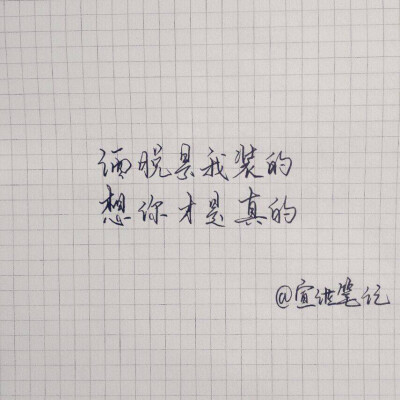 洒脱是我装的
想你才是真的
@宣继笔记